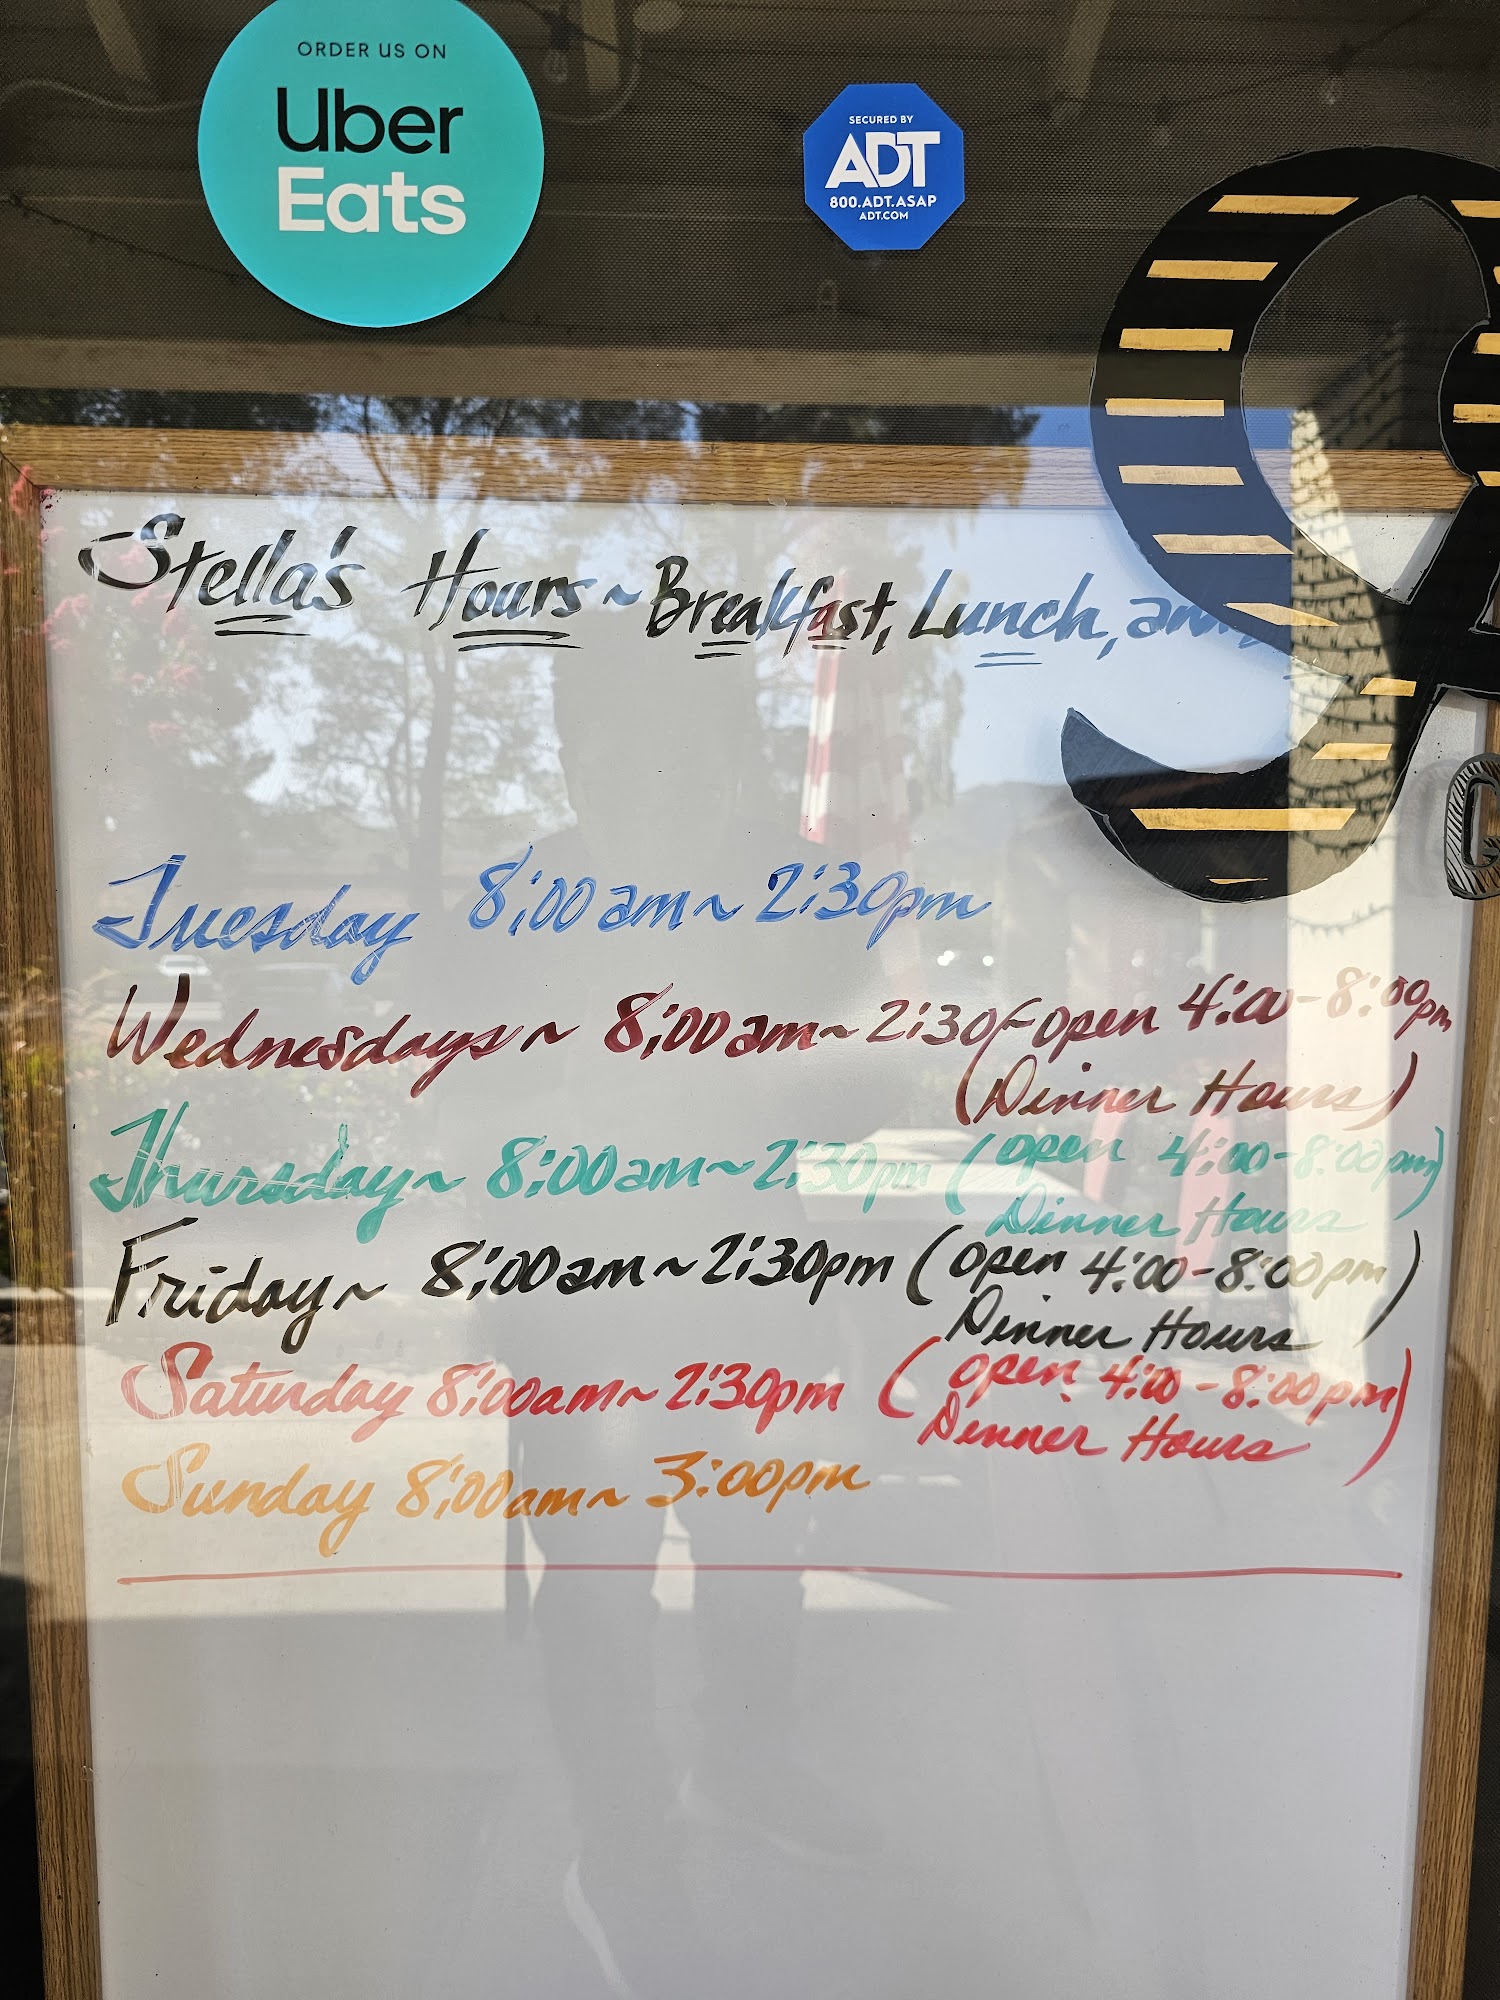 ORDER US ON
Uber
Eats
SECURED BY
ADT
800.ADT.ASAP
ADT.COM
Stella's Hours ~ Breakfast, Lunch, and
Tuesday 8:00am ~ 2:30pm
Wednesdays ~ 8:00am ~ 2:30 (-open 4:00-8:00pm
(Dinner Hours)
Thursday ~ 8:00am ~ 2:30pm (open 4:00-8:00pm)
Dinner Hours
Friday ~ 8:00am ~ 2:30pm (open 4:00-8:00pm)
Dinner Hours
Saturday 8:00am ~ 2:30pm (open 4:00-8:00pm)
Dinner Hours
Sunday 8:00am ~ 3:00pm